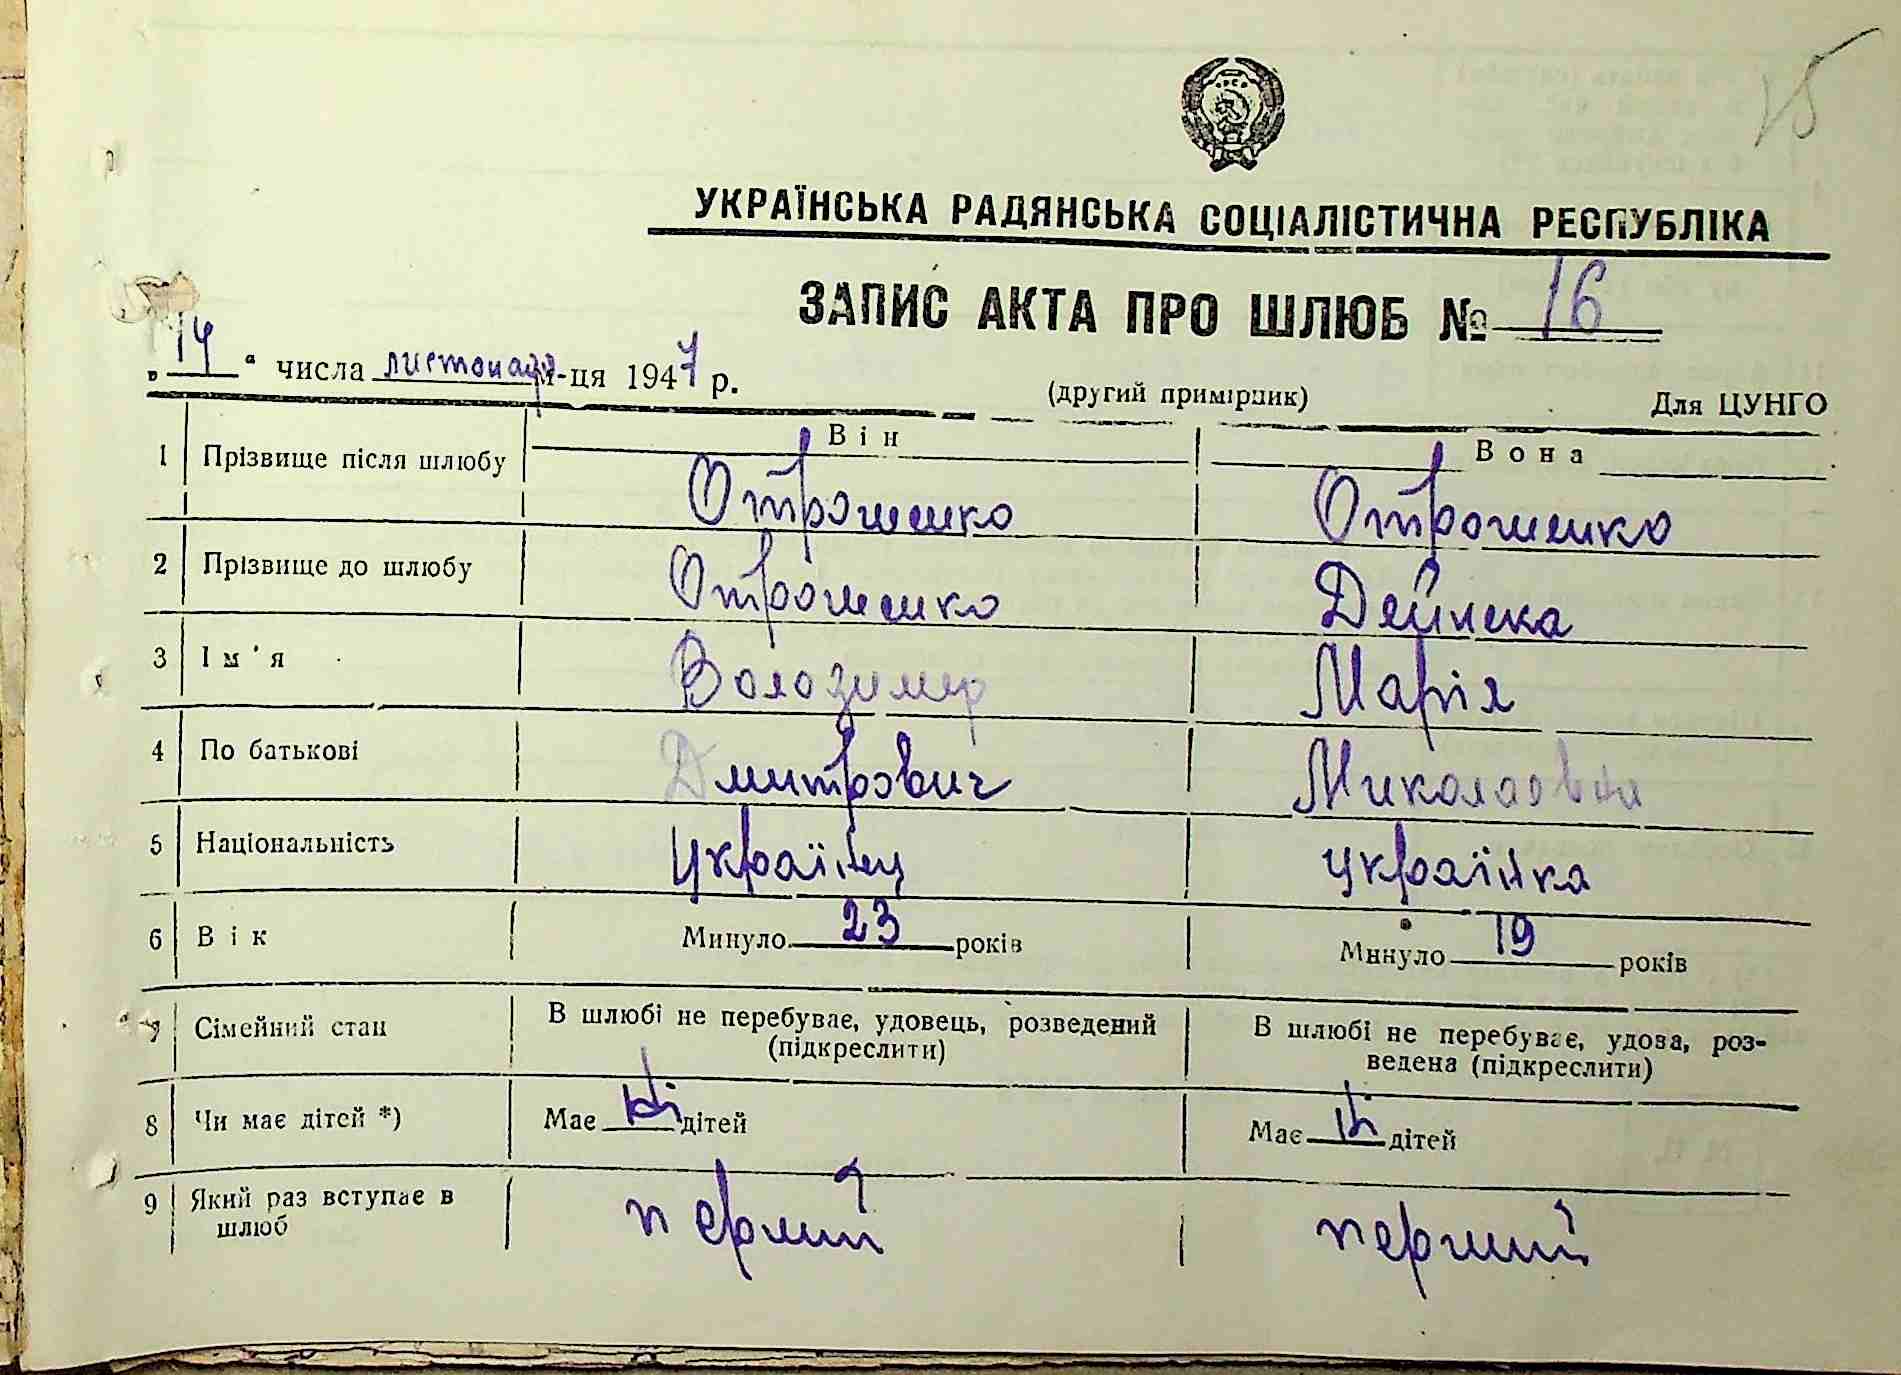 15
УКРАЇНСЬКА РАДЯНСЬКА СОЦІАЛІСТИЧНА РЕСПУБЛІКА
ЗАПИС АКТА ПРО ШЛЮБ № 16
„14“ числа листопада м-ця 1947 р.
(другий примірник) Для ЦУНГО
Він Вона
1 Прізвище після шлюбу Отрошенко Отрошенко
2 Прізвище до шлюбу Отрошенко Дейнека
3 Ім'я Володимер Марія
4 По батькові Дмитрович Миколаовна
5 Національність Українец українка
6 Вік Минуло 23 років Минуло 19 років
7 Сімейний стан В шлюбі не перебуває, удовець, розведений (підкреслити) В шлюбі не перебуває, удова, роз-
ведена (підкреслити)
8 Чи має дітей *) Має дітей Має дітей
9 Який раз вступає в шлюб перший перший